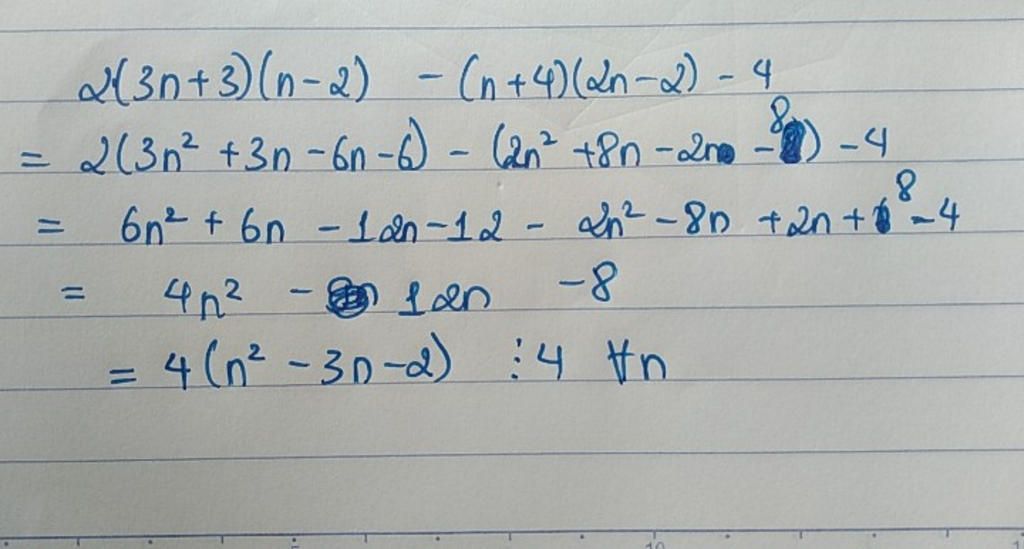 2(3n+3)(n-2) - (n+4)(2n-2) - 4
= 2(3n² + 3n - 6n - 6) - (2n² + 8n - 2n - 8) - 4
= 6n² + 6n - 12n - 12 - 2n² - 8n + 2n + 8 - 4
= 4n² - 12n - 8
= 4(n² - 3n - 2) ⋮ 4 ∀n
10